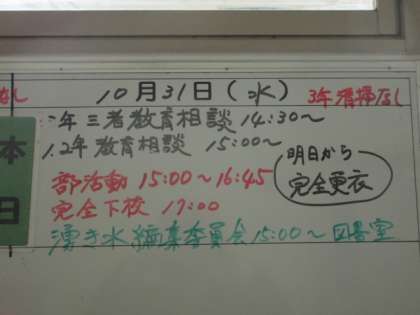 なし
10月31日(水) 3年清掃なし
年三者教育相談 14:30～
1.2年教育相談 15:00～
明日から
完全更衣
部活動 15:00～16:45
完全下校 17:00
湧き水編集委員会 15:00～ 図書室
本
日